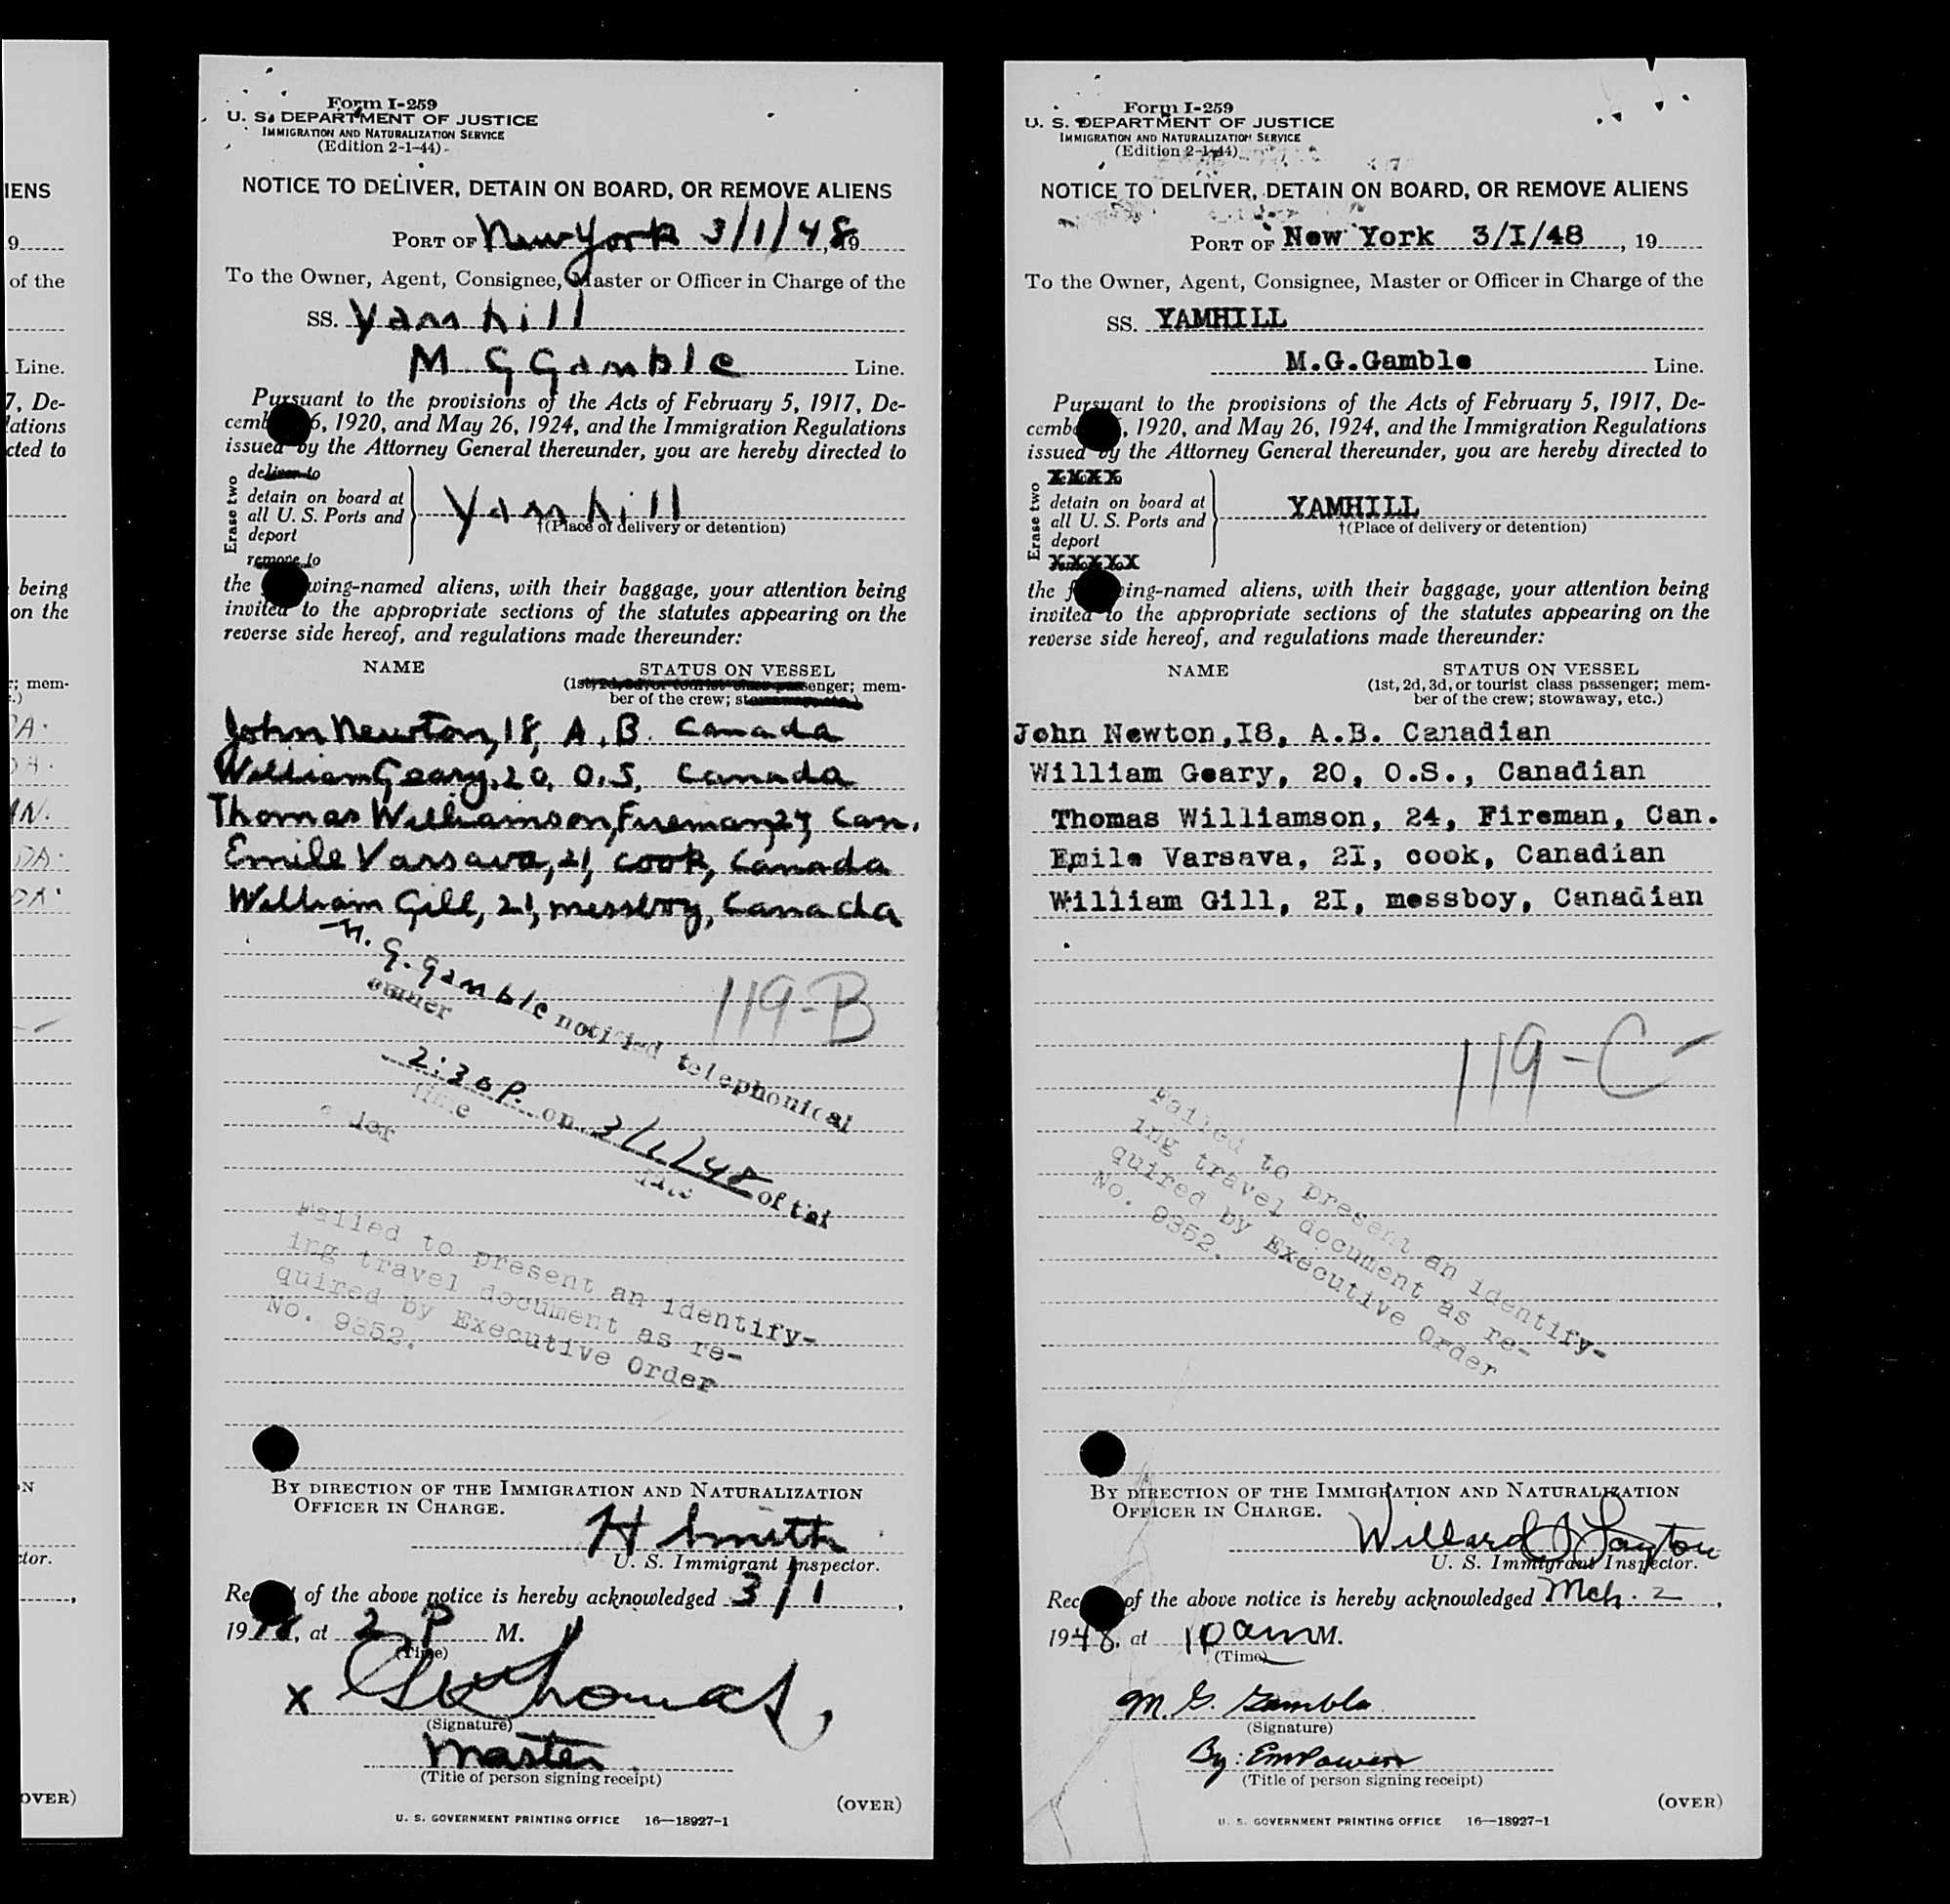 IENS
9
of the
Line.
7, De-
lations
cted to
being
on the
; mem-
.)
DA.
DA.
AN.
DA.
DA.
N
tor.
,
OVER)
Form I-259
U. S. DEPARTMENT OF JUSTICE
IMMIGRATION AND NATURALIZATION SERVICE
(Edition 2-1-44)
NOTICE TO DELIVER, DETAIN ON BOARD, OR REMOVE ALIENS
PORT OF New York 3/1/48, 19
To the Owner, Agent, Consignee, Master or Officer in Charge of the
SS. Yamhill
M G Gamble Line.
Pursuant to the provisions of the Acts of February 5, 1917, De-
cemb 6, 1920, and May 26, 1924, and the Immigration Regulations
issued by the Attorney General thereunder, you are hereby directed to
Erase two
deliver to
detain on board at
all U. S. Ports and
deport
remove to
Yamhill
†(Place of delivery or detention)
the wing-named aliens, with their baggage, your attention being
invited to the appropriate sections of the statutes appearing on the
reverse side hereof, and regulations made thereunder:
NAME STATUS ON VESSEL
(1st, 2d, 3d, or tourist class passenger; mem-
ber of the crew; stowaway, etc.)
John Newton, 18, A.B. Canada
William Geary, 20, O.S, Canada
Thomas Williamson, Fireman, 24, Can.
Emile Varsava, 21, cook, Canada
William Gill, 21, messboy, Canada
M. G. Gamble notified telephonical
owner
119-B
2:30 P. on 3/1/48 of tai
time date
Failed to present an identify-
ing travel document as re-
quired by Executive Order
No. 9352.
BY DIRECTION OF THE IMMIGRATION AND NATURALIZATION
OFFICER IN CHARGE.
H Smith
U. S. Immigrant Inspector.
Re of the above notice is hereby acknowledged 3/1,
1948, at 2 P M.
(Time)
x Thomas
(Signature)
Master
(Title of person signing receipt)
(OVER)
U. S. GOVERNMENT PRINTING OFFICE 16—18927-1
Form I-259
U. S. DEPARTMENT OF JUSTICE
IMMIGRATION AND NATURALIZATION SERVICE
(Edition 2-1-44)
NOTICE TO DELIVER, DETAIN ON BOARD, OR REMOVE ALIENS
PORT OF New York 3/I/48, 19
To the Owner, Agent, Consignee, Master or Officer in Charge of the
SS. YAMHILL
M.G.Gamble Line.
Pursuant to the provisions of the Acts of February 5, 1917, De-
cembe , 1920, and May 26, 1924, and the Immigration Regulations
issued by the Attorney General thereunder, you are hereby directed to
Erase two
XXXX
detain on board at
all U. S. Ports and
deport
XXXXX
YAMHILL
†(Place of delivery or detention)
the f ing-named aliens, with their baggage, your attention being
invited to the appropriate sections of the statutes appearing on the
reverse side hereof, and regulations made thereunder:
NAME STATUS ON VESSEL
(1st, 2d, 3d, or tourist class passenger; mem-
ber of the crew; stowaway, etc.)
John Newton,I8, A.B. Canadian
William Geary, 20, O.S., Canadian
Thomas Williamson, 24, Fireman, Can.
Emile Varsava, 2I, cook, Canadian
William Gill, 2I, messboy, Canadian
119-C
Failed to present an identify-
ing travel document as re-
quired by Executive Order
No. 9352.
BY DIRECTION OF THE IMMIGRATION AND NATURALIZATION
OFFICER IN CHARGE.
Willard Layton
U. S. Immigrant Inspector.
Rec of the above notice is hereby acknowledged Mch. 2,
1948, at 10 am M.
(Time)
M. G. Gamble
(Signature)
By: EMPowers
(Title of person signing receipt)
(OVER)
U. S. GOVERNMENT PRINTING OFFICE 16—18927-1